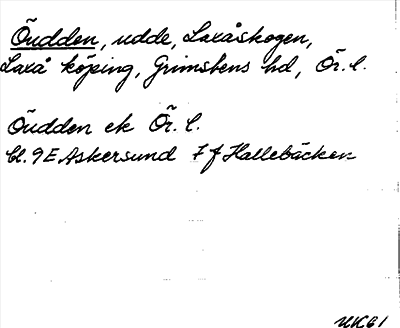 Öudden, udde, Laxåskogen,
Laxå köping, Grimstens hd, Ör. l.
Öudden ek Ör. l.
bl. 9E Askersund 7f Hallebäcken
UK61